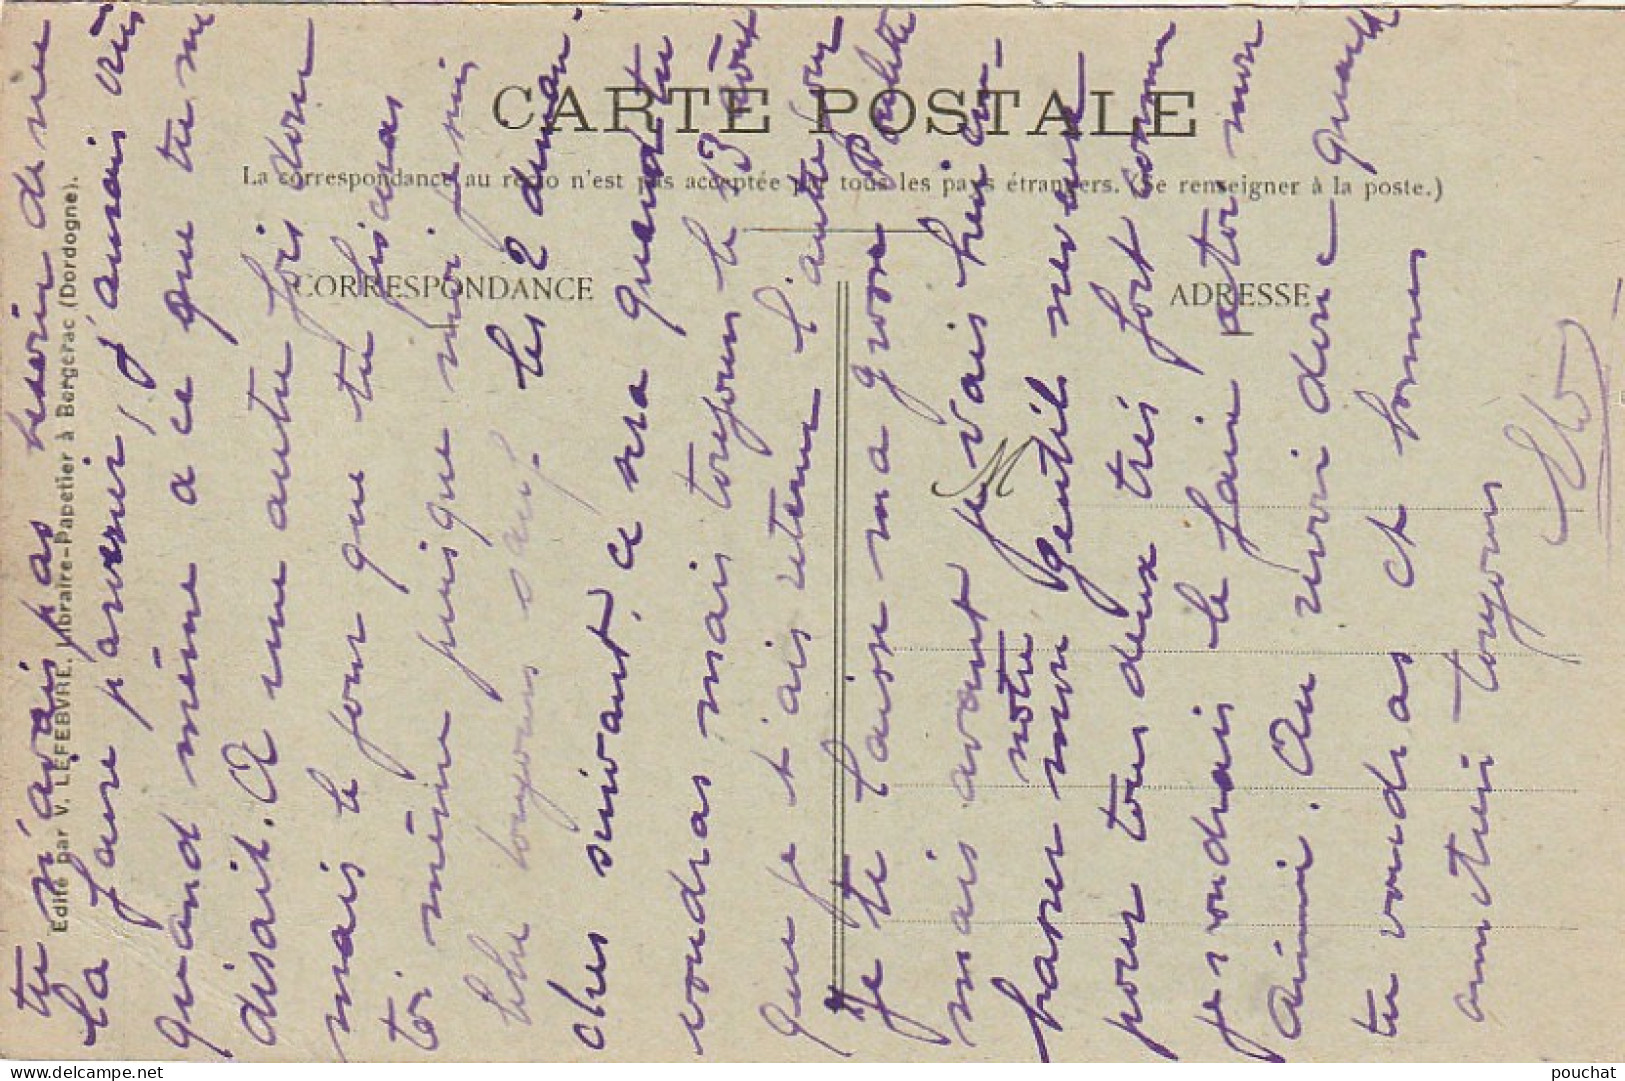 CARTE POSTALE
La correspondance au recto n'est pas acceptée par tous les pays étrangers. (Se renseigner à la poste.)
CORRESPONDANCE
ADRESSE
M
Edité par V. LEFEBVRE, Libraire-Papetier à Bergerac (Dordogne).
tu n'avais pas besoin de me
la faire parvenir, j'aurais cru
quand même a ce que tu me
disait. A une autre fois donc
mais le jour que tu liseras
toi même puisque moi je suis
toujours sauf les 2 diman-
ches suivant, ce sera quand tu
voudras mais toujours le 3 août
que je t'ais retenu l'autre jour
Je te laisse ma grosse Poulette
mais avant je vais bien em-
brasser notre mon gentil neveux
pour tous deux très fort comme
je voudrais le faire a tor mon
Aimé. Au revoir donc quand
tu voudras et bonnes
amitiés toujours